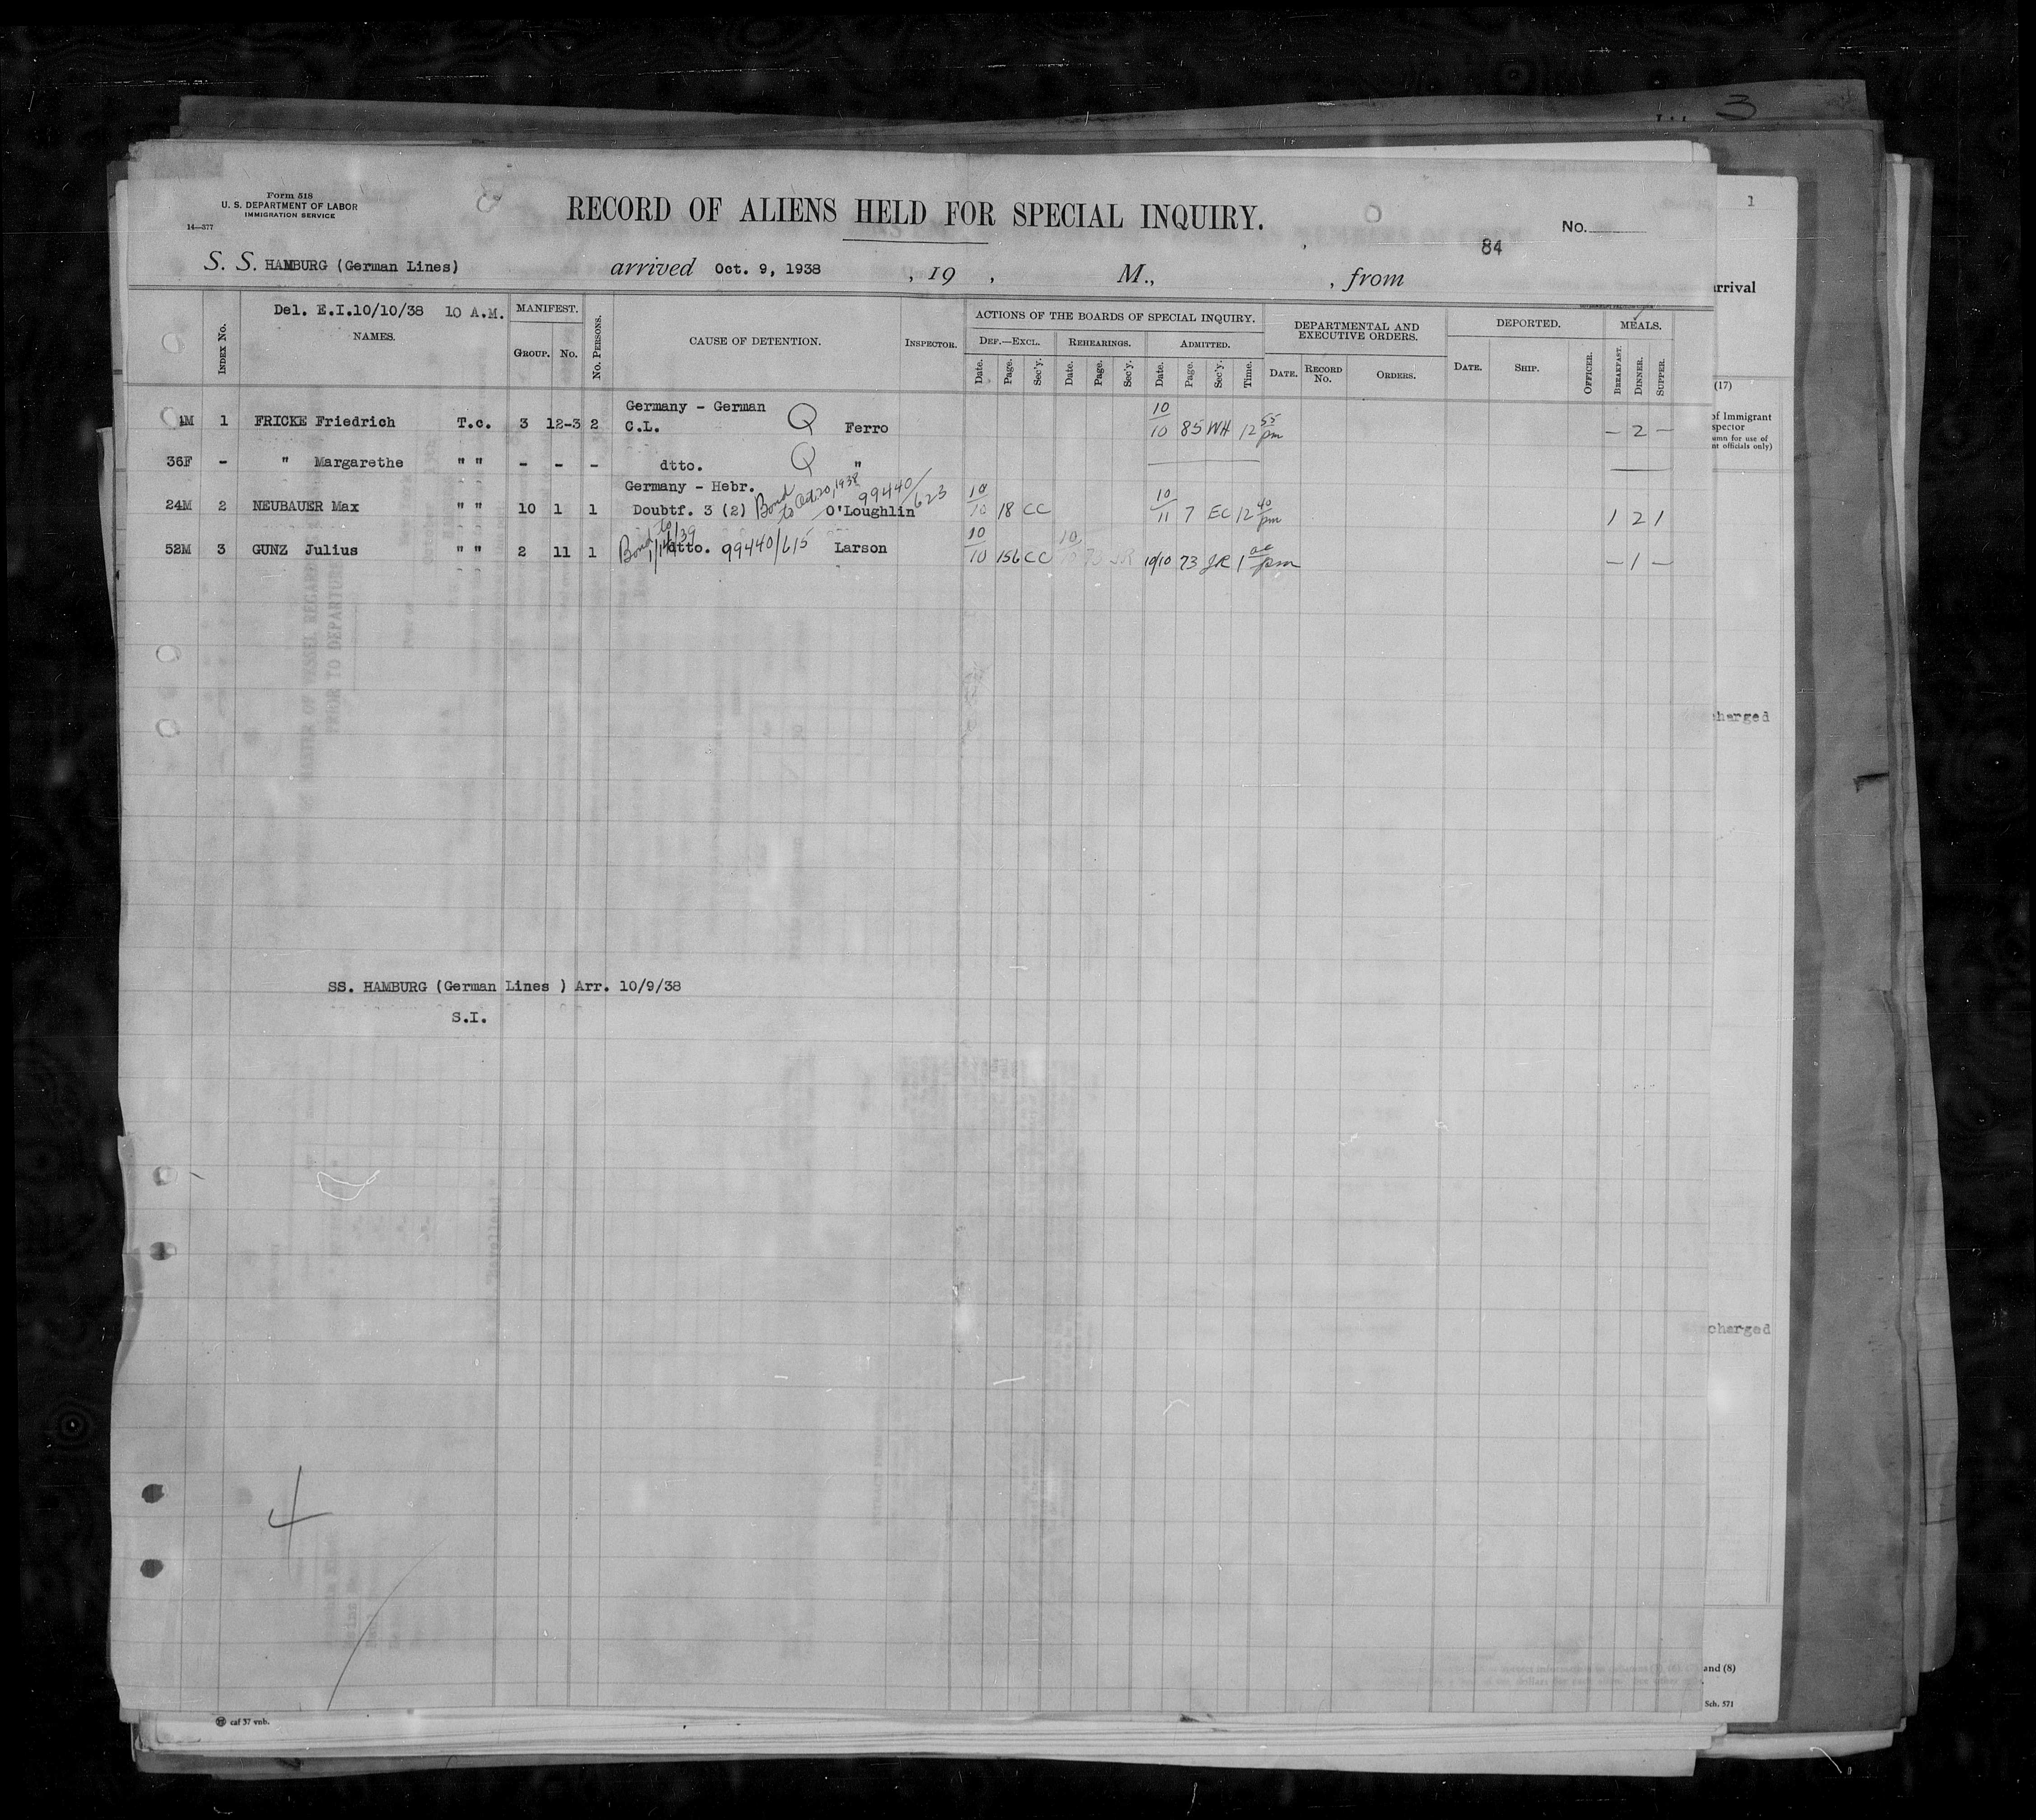 3
1
Form 518
U. S. DEPARTMENT OF LABOR
IMMIGRATION SERVICE
14—377
RECORD OF ALIENS HELD FOR SPECIAL INQUIRY.
No.
84
S. S. HAMBURG (German Lines) arrived Oct. 9, 1938 , 19 , M., , from
rrival
Del. E.I.10/10/38 10 A.M.
INDEX No. NAMES. MANIFEST. GROUP. No. No. PERSONS. CAUSE OF DETENTION. INSPECTOR. ACTIONS OF THE BOARDS OF SPECIAL INQUIRY. DEPARTMENTAL AND EXECUTIVE ORDERS. DEPORTED. MEALS.
DEF.—EXCL. REHEARINGS. ADMITTED.
Date. Page. Sec'y. Date. Page. Sec'y. Date. Page. Sec'y. Time. DATE. RECORD No. ORDERS. DATE. SHIP. OFFICER. BREAKFAST. DINNER. SUPPER.
(17)
of Immigrant
spector
umn for use of
nt officials only)
Germany - German
1M 1 FRICKE Friedrich T.c. 3 12-3 2 C.L. Q Ferro 10/10 85 WH 12 55 pm — 2 —
36F - " Margarethe " " - - - dtto. Q "
Germany - Hebr.
24M 2 NEUBAUER Max " " 10 1 1 Doubtf. 3 (2) Bond to Oct. 20, 1938 99440/623 O'Loughlin 10/10 18 CC 10/11 7 EC 12 40 pm 1 2 1
52M 3 GUNZ Julius " " 2 11 1 Bond to dtto. 99440/615 Larson 10/10 156 CC 10/10 73 JR 10/10 73 JR 1 pm — 1 —
charged
SS. HAMBURG (German Lines ) Arr. 10/9/38
S.I.
charged
4
and (8)
Sch. 571
caf 37 vnb.